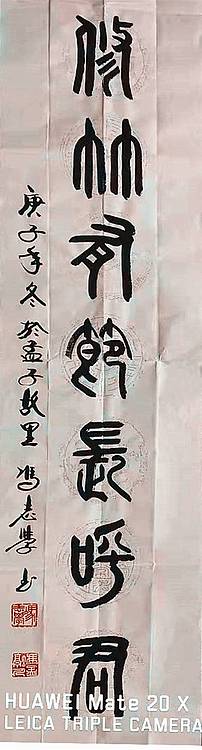 修竹有節長呼君
庚子年冬於孟子故里 馮志學书
HUAWEI Mate 20 X
LEICA TRIPLE CAMERA